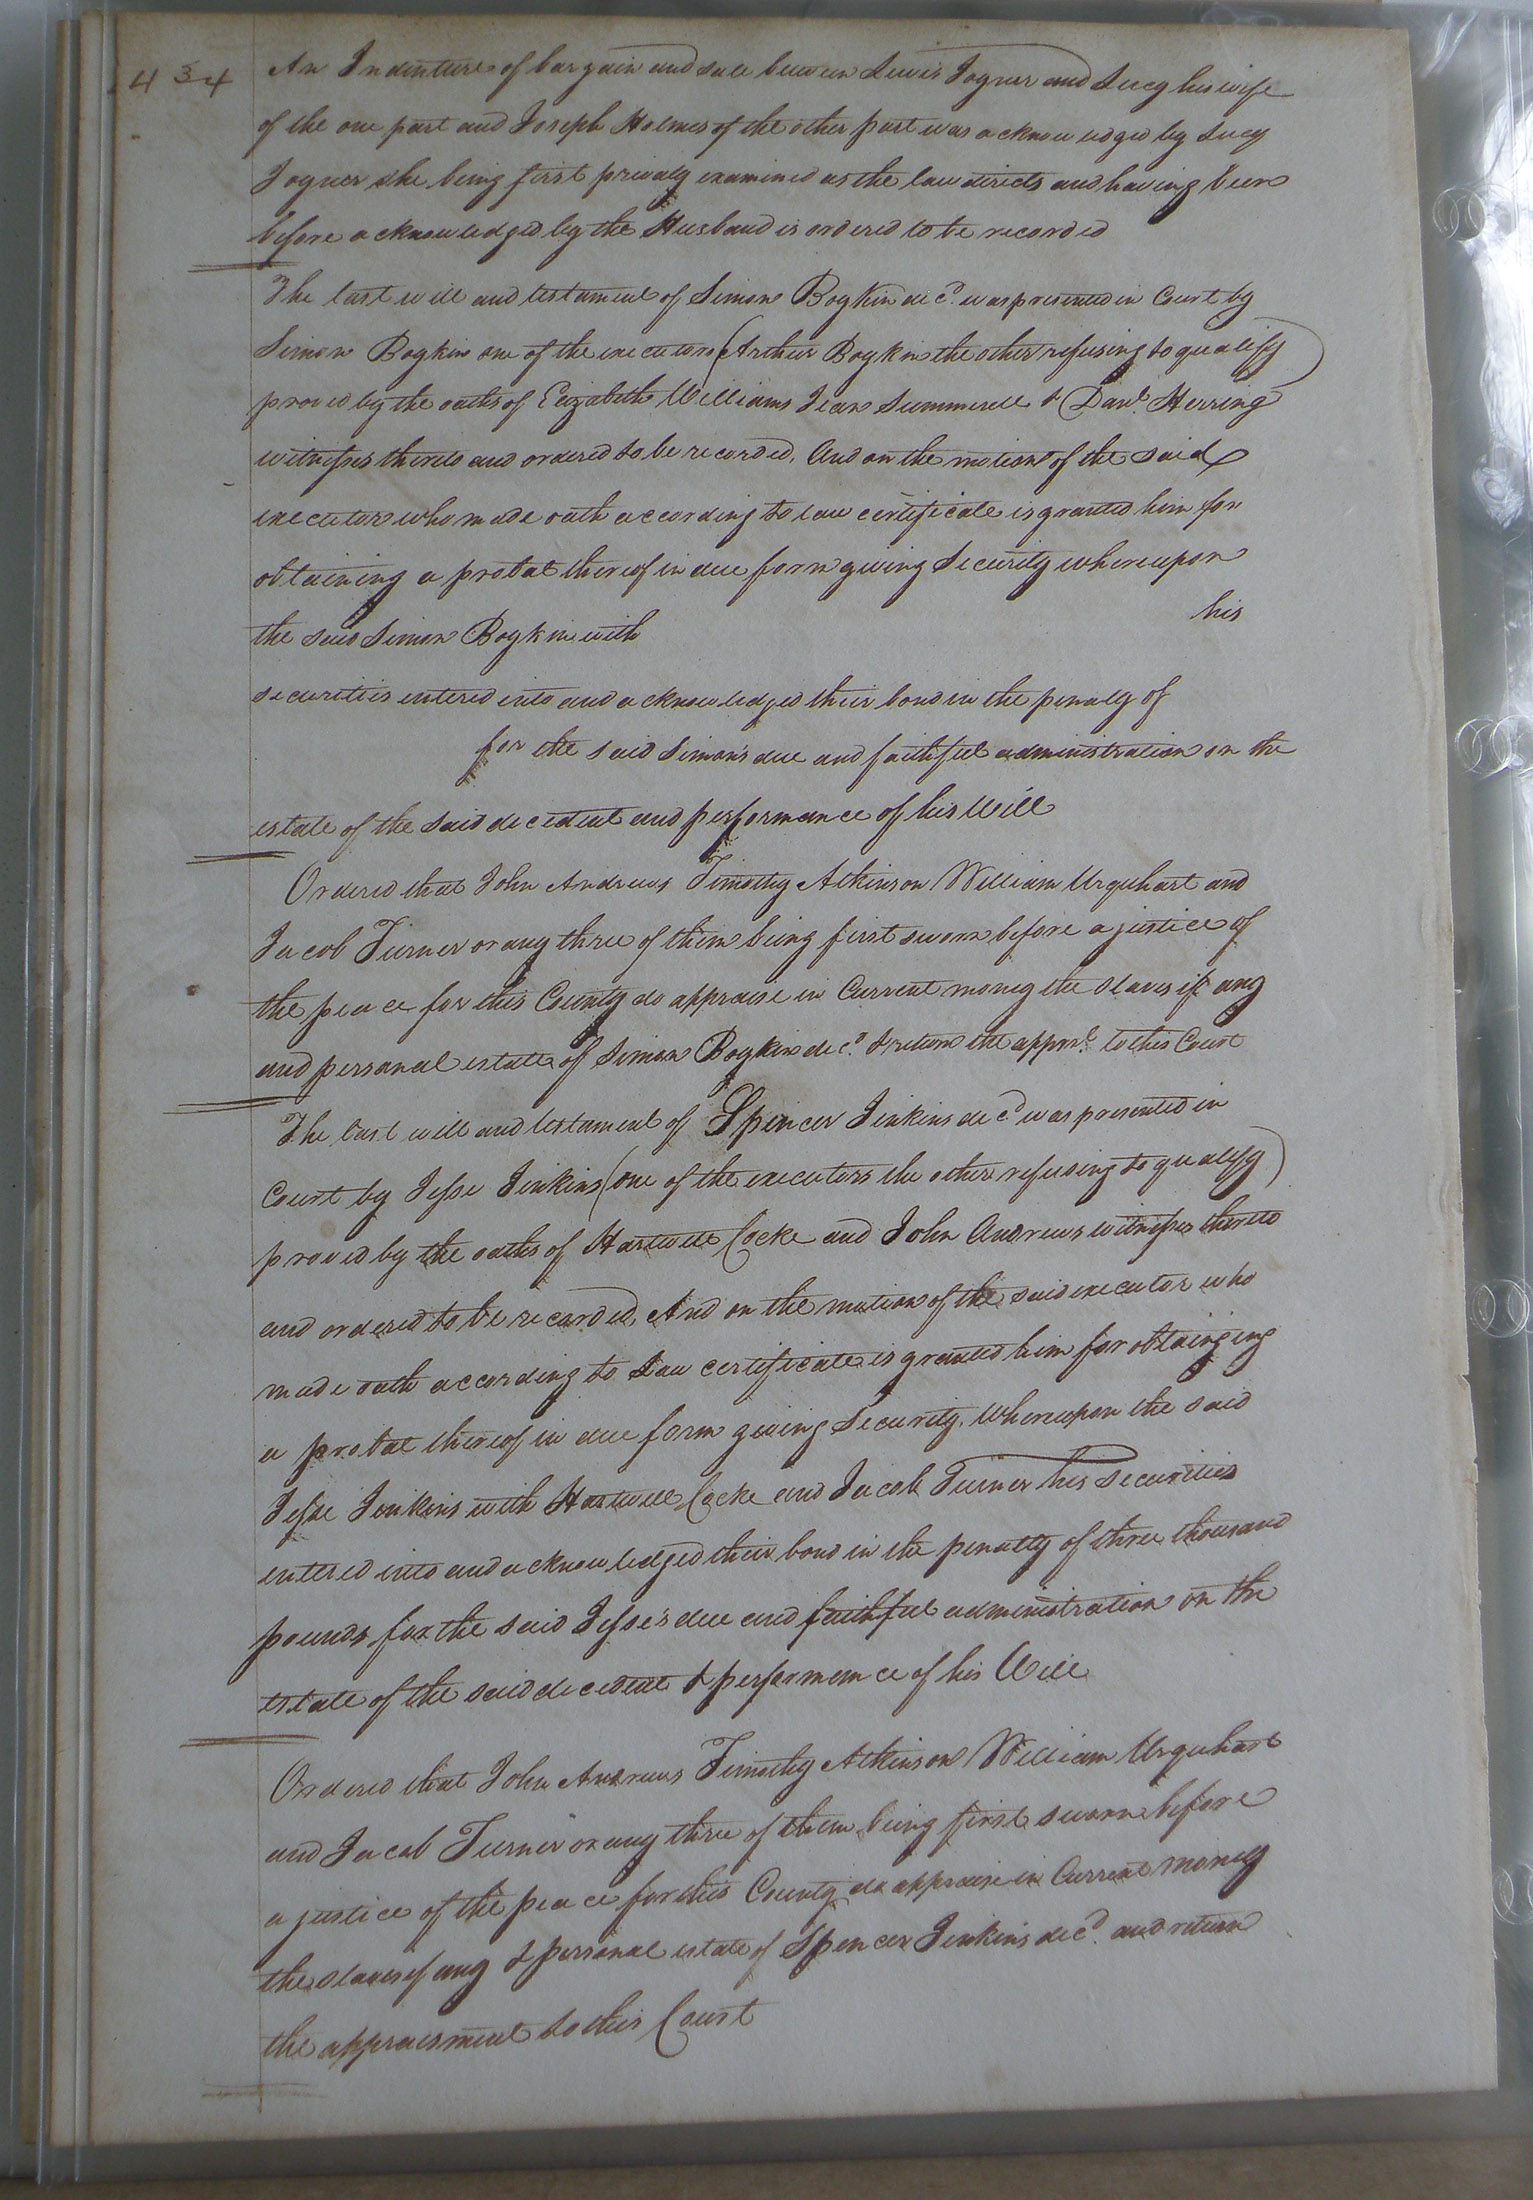 434
An Indenture of bargain and sale between Lewis Joyner and Lucy his wife
of the one part and Joseph Holmes of the other part was acknowledged by Lucy
Joyner she being first privaly examined as the law directs and having been
before acknowledged by the Husband is ordered to be recorded
The last will and testament of Simon Boykin decd. was presented in Court by
Simon Boykin one of the executors (Arthur Boykin the other refusing to qualify)
proved by the oaths of Elizabeth Williams Jean Summerell & Danl. Herring
witnesses thereto and ordered to be recorded. And on the motion of the said
executor who made oath according to law certificate is granted him for
obtaining a probat thereof in due form giving Security whereupon
the said Simon Boykin with his
securities entered into and acknowledged their bond in the penaly of
for the said Simon's due and faithful administration on the
estate of the said decedent and performance of his Will
Ordered that John Andrews Timothy Atkinson William Urquhart and
Jacob Turner or any three of them being first sworn before a justice of
the peace for this County do appraise in Current money the slaves if any
and personal estate of Simon Boykin decd. & return the apprmt. to this Court
The last will and testament of Spencer Jenkins decd was presented in
Court by Jesse Jenkins (one of the executors the other refusing to qualify)
proved by the oaths of Hartwell Cocke and John Andrews witnesses thereto
and ordered to be recorded. And on the motion of the said executor who
made oath according to Law certificate is granted him for obtainging
a probat thereof in due form giving Security. Whereupon the said
Jesse Jenkins with Hartwell Cocke and Jacob Turner his securities
entered into and acknowledged their bond in the penalty of three thousand
pounds for the said Jesse's due and faithful administration on the
estate of the said decedent & performance of his Will
Ordered that John Andrews Timothy Atkinson William Urquhart
and Jacob Turner or any three of them being first sworn before
a justice of the peace for this County do appraise in Current money
the slaves if any & personal estate of Spencer Jenkins decd. and return
the appraisment to this Court